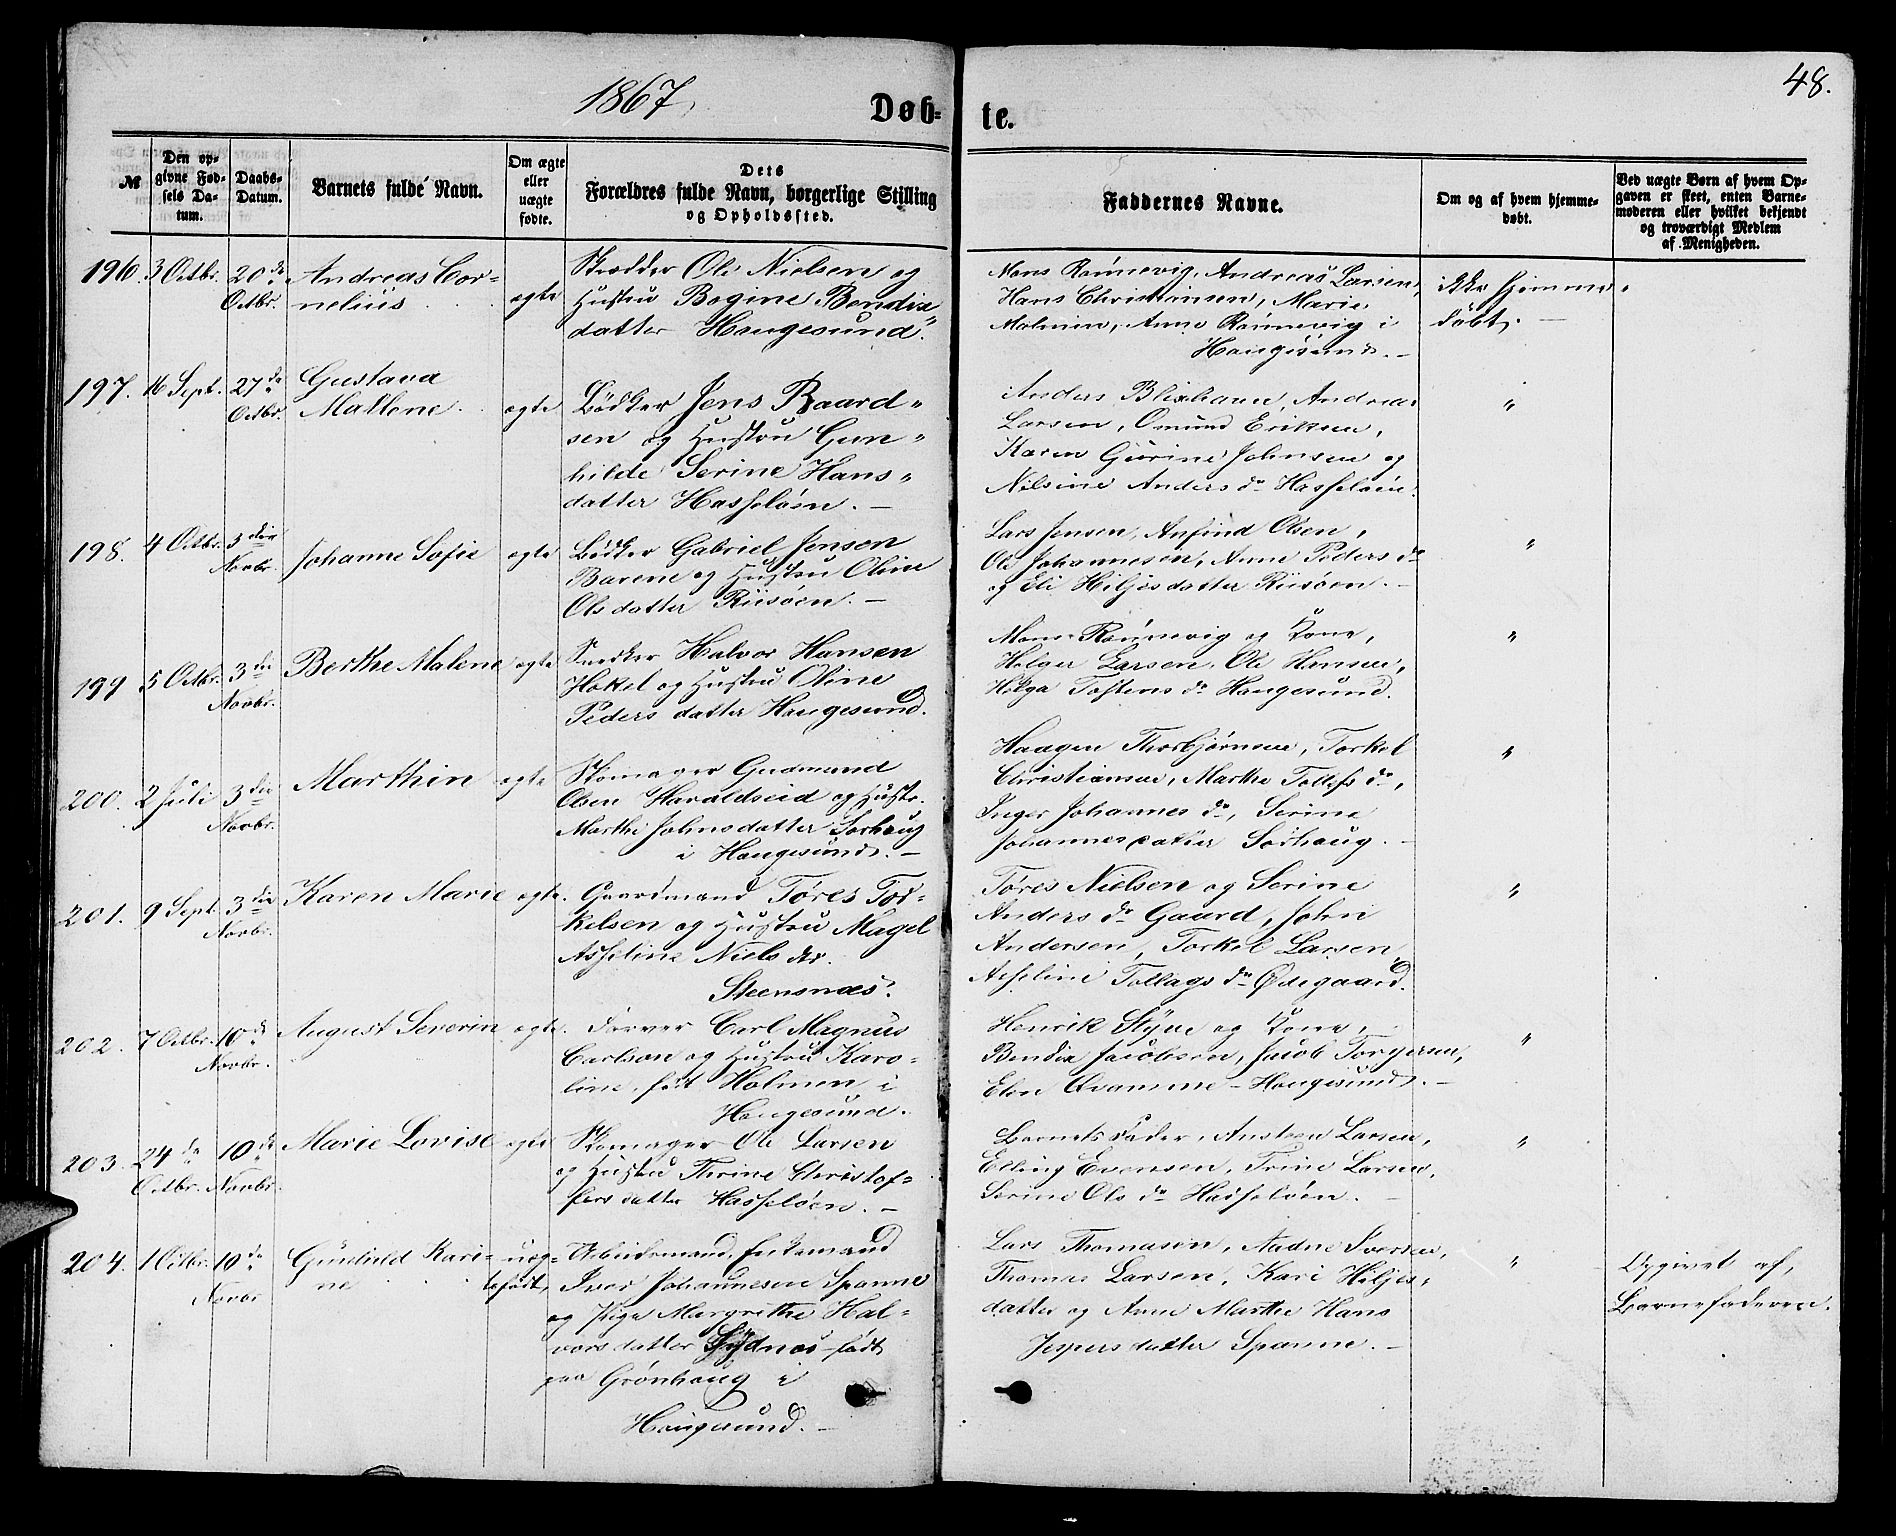 1867.
Døb-
te.
48.
№
Den op-
givne Fød-
sels Da-
tum.
Daabs-
Datum.
Barnets fulde Navn.
Om ægte
eller
uægte
fødte.
Dets
Forældres fulde Navn, borgerlige Stilling
og Opholdssted.
Faddernes Navne.
Om og af hvem hjemme-
døbt.
Ved uægte Børn af hvem Op-
gaven er skeet, enten Barne-
moderen eller hvilket bekjendt
og troværdigt Medlem
af Menigheden.
196. 3 Octbr. 20de
Octbr.
Andreas Cor-
nelius
ægte
Skrædder Ole Nielsen og
Hustru Bogine Bendix
datter Haugesund.
Mons Rønnevig, Andreas Larsen,
Hans Christiansen, Marie
Malmin, Anne Rønnevig i
Haugesund. —
ikke hjemme-
døbt. —
197. 16 Sept. 27de
Octbr.
Gustava
Mallene.
ægte
Bødker Jens Baard-
sen og Hustru Gun-
hilde Serine Hans-
datter Hasseløen. —
Anders Blixhavn, Andreas
Larsen, Osmund Eriksen,
Karen Gurine Johnsen og
Nilsine Anders dr Hasseløen.
"
198. 4 Octbr. 3die
Novbr.
Johanne Sofie
ægte
Bødker Gabriel Jensen
Barene og Hustru Oline
Olsdatter Riisøen. —
Lars Jensen, Anfind Olsen,
Ole Johannesen, Anne Peders dr
og Eli Hiljesdatter Riisøen. —
"
199 5 Octbr. 3die
Novbr.
Berthe Malene
ægte
Snedker Halvor Hansen
Hokel og Hustru Oline
Peders datter Haugesund.
Mons Rønnevig og Kone,
Holger Larsen, Ole Hansen,
Helga Tostens dr Haugesund.
"
200. 2 Juli 3die
Novbr.
Marthin
ægte
Skomager Gudmund
Olsen Haraldseid og Hustr.
Marthe Johnsdatter Sørhaug
i Haugesund. —
Haagen Thorbjørnsen, Torkel
Christiansen, Marthe Tollefs dr,
Inger Johannes dr, Serine
Johannesdatter Sørhaug. —
"
201. 9 Sept. 3die
Novbr.
Karen Marie
ægte.
Gaardmand Tøres Tor-
kelsen og Hustru Magel
Asseline Niels dtr.
Steensnæs.
Tøres Nielsen og Serine
Anders dr Gaard, John
Andersen, Torkel Larsen,
Asseline Tollags dr Ødegaard.
"
202. 7 Octbr. 10de
Novbr.
August Severin
ægte.
Farver Carl Magnus
Carlson og Hustru Karo-
line, født Holmen i
Haugesund.
Henrik Styve og Kone,
Bendix Jacobsen, Jacob Torgersen,
Elen Qvamme — Haugesund. —
"
203. 24de
Octbr.
10de
Novbr.
Marie Lovise
ægte
Skomager Ole Larsen
og Hustru Thrine Christof-
fersdatter Hasseløen. —
Barnets Fader, Austen Larsen,
Elling Evensen, Trine Larsen,
Serine Ols dr Hasseløen. —
"
204. 1 Octbr. 10de
Novbr
Gunhild Kari-
ne
uæg-
tefødt,
Arbeidsmand, Enkemand
Iver Johannesen Spanne
og Pige Margrethe Hal-
vorsdatter Sydnæs født
paa Grønhaug i
Haugesund. —
Lars Thomasen, Aadne Iversen,
Thomas Larsen, Kari Hiljes-
datter og Anne Marthe Hans
Jespersdatter Spanne. —
"
Opgivet af,
Barnefaderen.